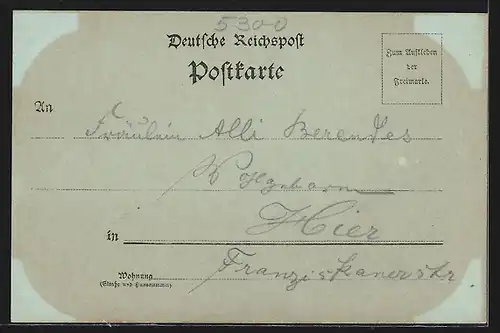 5300
Deutsche Reichspost
Postkarte
Zum Aufkleben
der
Freimarke.
An
Fräulein Alli Berendes
Wohlgeborn
Hier
in
Wohnung
(Straße und Hausnummer)
Franziskanerstr